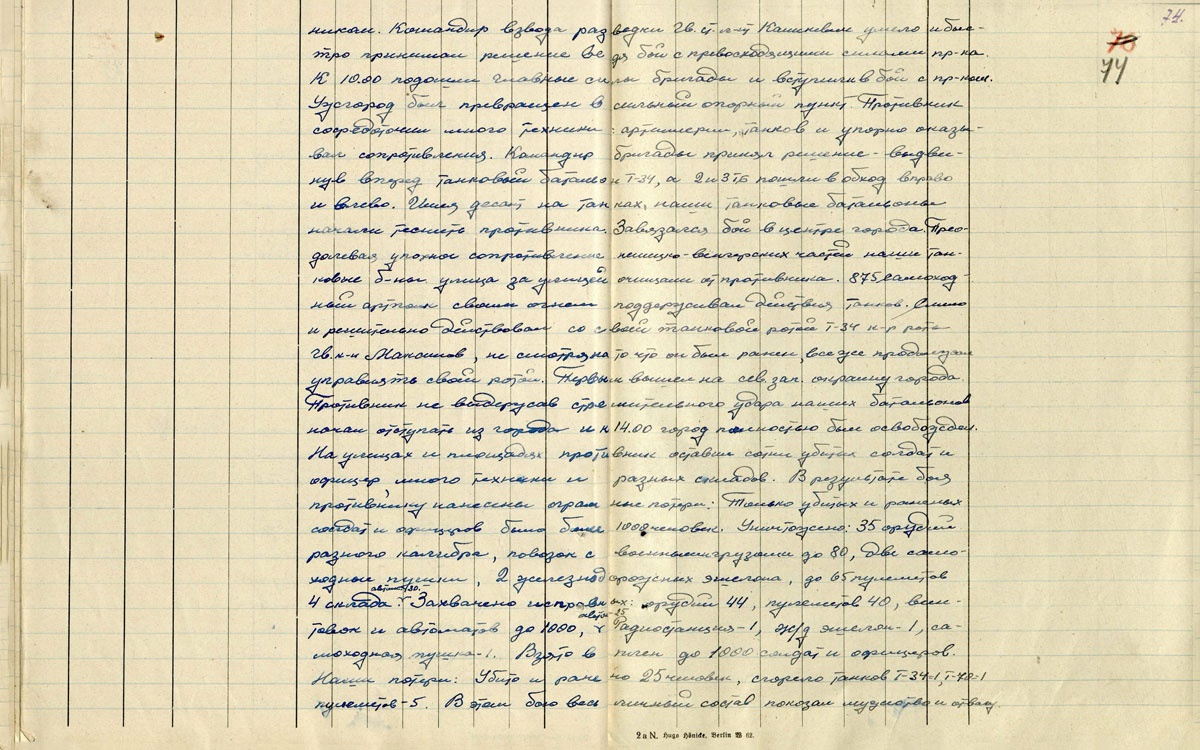 74.
70
74
никам. Командир взвода разведки Гв. ст. л-т Кашкевич умело и быс-
тро принимал решение ведя бой с превосходящими силами пр-ка.
К 10.00 подошли главные силы бригады и вступили в бой с пр-ком.
Ужгород был превращен в сильный опорный пункт. Противник
сосредоточил много техники: артиллерии, танков и упорно оказы-
вал сопротивления. Командир бригады принял решение - выдви-
нув вперед танковый батальон Т-34, а 2 и 3 тб пошли в обход вправо
и влево. Имея десант на танках, наши танковые батальоны
начали теснить противника. Завязался бой в центре города. Прео-
долевая упорное сопротивление немецко-венгерских частей наши тан-
ковые б-ны улица за улицей очищали от противника. 875 самоход-
ный артполк своим огнем поддерживал действия танков. Смело
и решительно действовал со своей танковой ротой Т-34 к-р роты
Гв. к-н Максимов, не смотря на то что он был ранен, все же продолжал
управлять свой ротой. Первым вышел на сев. зап. окраину города.
Противник не выдержав стремительного удара наших батальонов
начал отступать из города и к 14.00 город полностью был освобожден.
На улицах и площадях противник оставил сотни убитых солдат и
офицер, много техники и разных складов. В результате боя
противнику нанесены огромные потери: Только убитых и раненых
солдат и офицеров было более 1000 человек. Уничтожено: 35 орудий
разного калибра, повозок с военными грузами до 80, две само-
ходные пушки, 2 железнодорожных эшелона, до 65 пулеметов
автомаш 30.
4 склада. Захвачено исправных: орудий 44, пулеметов 40, вин-
автом-25
товок и автоматов до 1000, Радиостанция-1, ж/д эшелон-1, са-
моходная пушка-1. Взято в плен до 1000 солдат и офицеров.
Наши потери: Убито и ранено 25 человек, сгорело танков Т-34-1, Т-70-1
пулеметов-5. В этом бою весь личный состав показал мужество и отвагу.
2 a N. Hugo Hönicke, Berlin W 62.